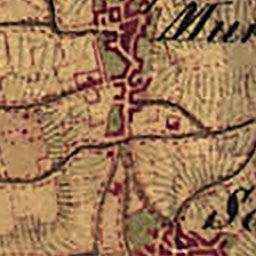 Mur
Sa